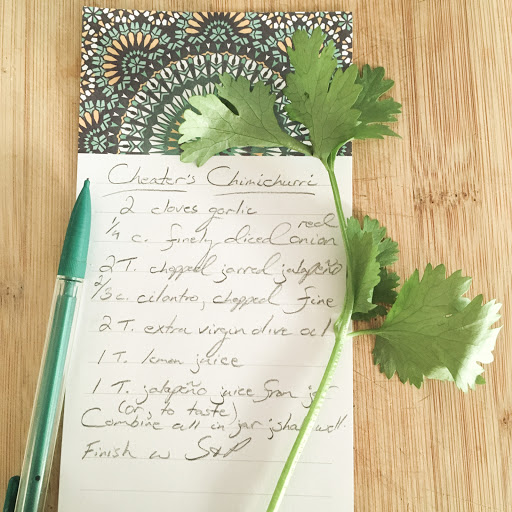 Cheater's Chimichurri
2 cloves garlic
1/4 c. finely diced red onion
2 T. chopped jarred jalapeño
2/3 c. cilantro, chopped fine
2 T. extra virgin olive oil
1 T. lemon juice
1 T. jalapeño juice from jar
(or, to taste)
Combine all in jar, shake well.
Finish w S&P